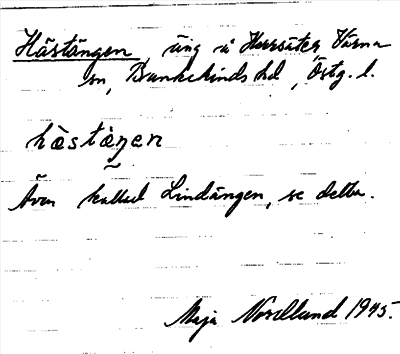 Hästängen äng å Herrsäter Värna
sn, Bankekinds hd, Östg. l.
hästäŋen
Även kallad Lindängen, se detta.
Maja Nordlund 1945.